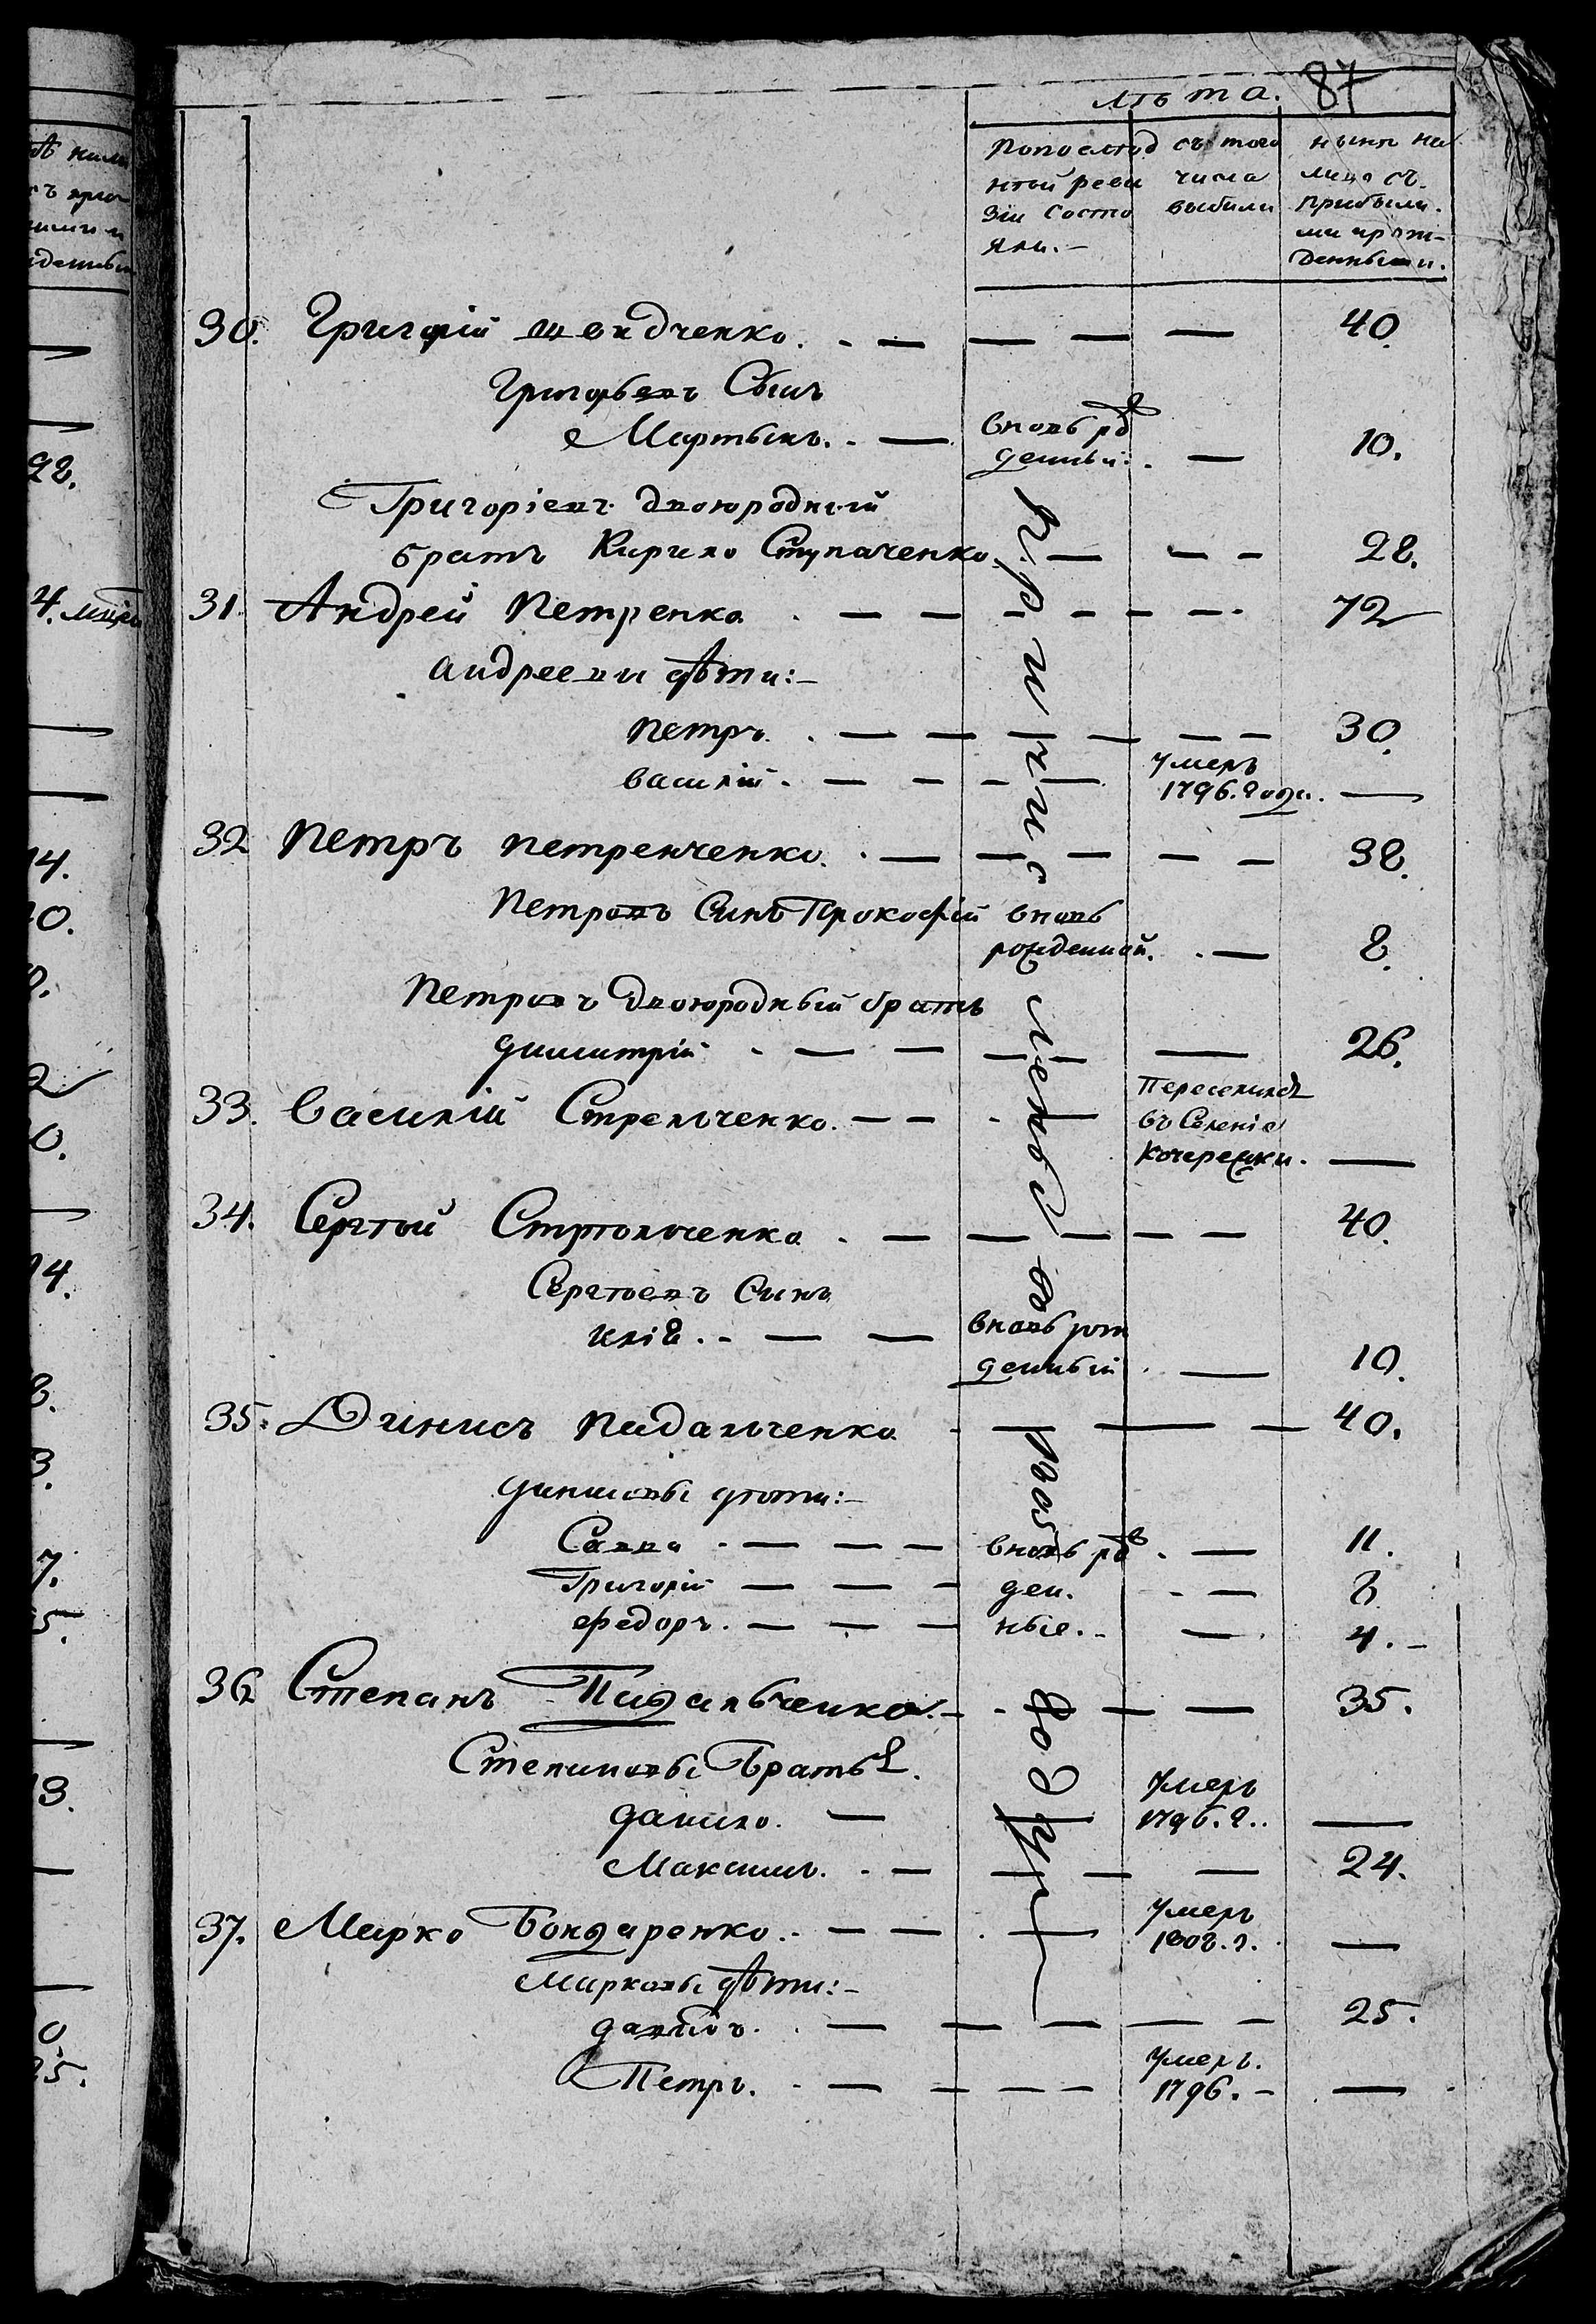 лѣта. 87
по послѣд
нѣй реви
зіи состо
яли.-
съ того
числа
выбыли
нынѣ на
лицо съ
прибылы.
ми и рож-
денными.
30. Григорій Шендченко. 40.
Григорьевъ Сынъ
Мартынъ. вновь рож
денный. 10.
Григоріевъ двоюродный
братъ Кирило Ступаченко 28.
31. Андрей Петренко. 72
Андреевы дѣти:-
Петръ. 30.
Василій. умеръ
1796. года.
32 Петръ Петренченко. 38.
Петровъ Синъ Прокофій вновь
рожденной. 8.
Петровъ двоюродный братъ
Димитрій 26.
33. Василій Стрельченко. Переселился
въ Селеніе
Кочережки.
34. Сергѣй Стрѣльченко. 40.
Сергѣевъ Синъ
Илія. вновь рож
денный 10.
35. Динисъ Пидальченко 40.
Динисовы дѣти:-
Савва вновь рож 11.
Григорій ден. 8.
Федоръ. ные. 4.
36 Степанъ Пидальченко. 35.
Степановы Братья.
Данило. умеръ
1796. г.
Максимъ. 24.
37. Марко Бондаренко. умеръ
1808. г.
Марковы дѣти:-
Давидъ. 25.
Петръ. умеръ.
1796.
причислен въ 1801 году